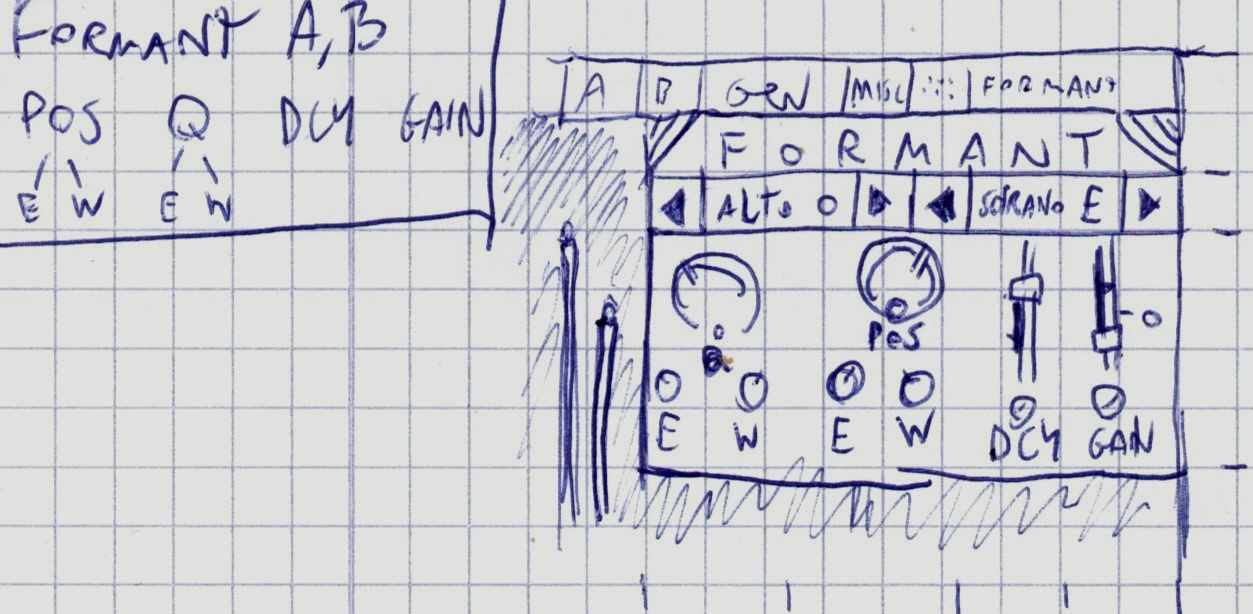 FORMANT A, B
POS Q DCY GAIN
E W E W
A B GEN MISC FORMANT
FORMANT
ALTO O SOPRANO E
Q POS O
E W E W
DCY GAIN